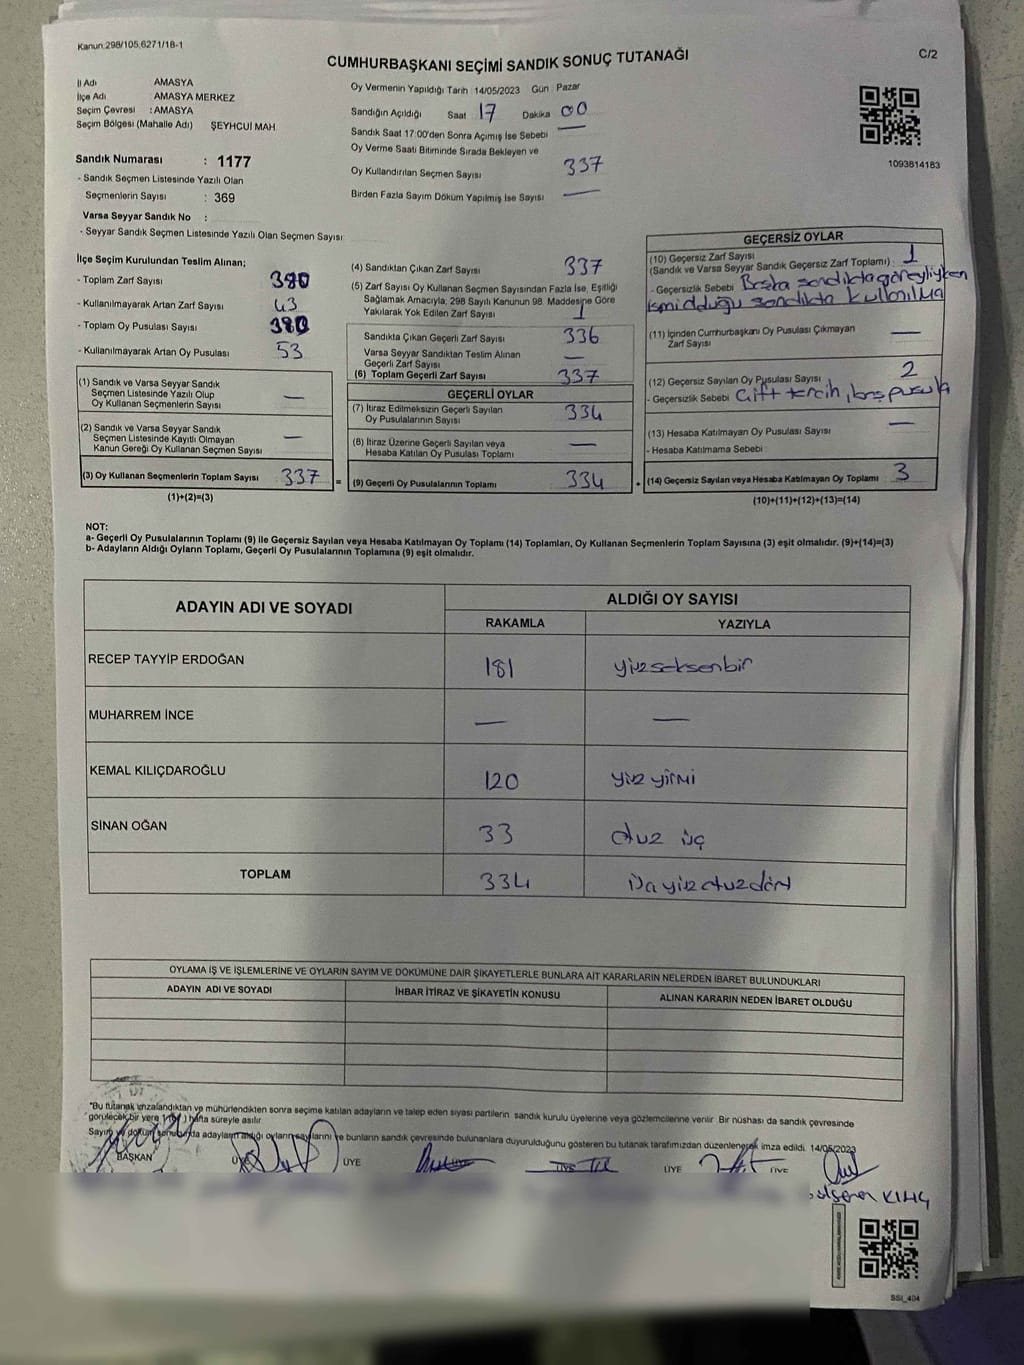 Kanun.298/105,6271/18-1
C/2
CUMHURBAŞKANI SEÇİMİ SANDIK SONUÇ TUTANAĞI
İl Adı AMASYA
İlçe Adı AMASYA MERKEZ
Seçim Çevresi : AMASYA
Seçim Bölgesi (Mahalle Adı) ŞEYHCUİ MAH.
Sandık Numarası : 1177
- Sandık Seçmen Listesinde Yazılı Olan
Seçmenlerin Sayısı : 369
Varsa Seyyar Sandık No :
- Seyyar Sandık Seçmen Listesinde Yazılı Olan Seçmen Sayısı
Oy Vermenin Yapıldığı Tarih 14/05/2023 Gün Pazar
Sandığın Açıldığı Saat 17 Dakika 00
Sandık Saat 17:00'den Sonra Açımış İse Sebebi —
Oy Verme Saati Bitiminde Sırada Bekleyen ve
Oy Kullandırılan Seçmen Sayısı 337
Birden Fazla Sayım Döküm Yapılmış İse Sayısı —
1093814183
İlçe Seçim Kurulundan Teslim Alınan;
- Toplam Zarf Sayısı 380
- Kullanılmayarak Artan Zarf Sayısı 43
- Toplam Oy Pusulası Sayısı 380
- Kullanılmayarak Artan Oy Pusulası 53
(1) Sandık ve Varsa Seyyar Sandık
Seçmen Listesinde Yazılı Olup
Oy Kullanan Seçmenlerin Sayısı —
(2) Sandık ve Varsa Seyyar Sandık
Seçmen Listesinde Kayıtlı Olmayan
Kanun Gereği Oy Kullanan Seçmen Sayısı —
(3) Oy Kullanan Seçmenlerin Toplam Sayısı 337 =
(1)+(2)=(3)
(4) Sandıktan Çıkan Zarf Sayısı 337
(5) Zarf Sayısı Oy Kullanan Seçmen Sayısından Fazla İse, Eşitliği
Sağlamak Amacıyla, 298 Sayılı Kanunun 98. Maddesine Göre
Yakılarak Yok Edilen Zarf Sayısı 1
Sandıkta Çıkan Geçerli Zarf Sayısı 336
Varsa Seyyar Sandıktan Teslim Alınan
Geçerli Zarf Sayısı —
(6) Toplam Geçerli Zarf Sayısı 337
GEÇERLİ OYLAR
(7) İtiraz Edilmeksizin Geçerli Sayılan
Oy Pusulalarının Sayısı 334
(8) İtiraz Üzerine Geçerli Sayılan veya
Hesaba Katılan Oy Pusulası Toplamı —
(9) Geçerli Oy Pusulalarının Toplamı 334 +
GEÇERSİZ OYLAR
(10) Geçersiz Zarf Sayısı
(Sandık ve Varsa Seyyar Sandık Geçersiz Zarf Toplamı) : 1
- Geçersizlik Sebebi Başka sandıkta görevliyken
sandıkta kullanılma
(11) İçinden Cumhurbaşkanı Oy Pusulası Çıkmayan
Zarf Sayısı —
(12) Geçersiz Sayılan Oy Pusulası Sayısı 2
- Geçersizlik Sebebi Çift tercih, boş pusula
(13) Hesaba Katılmayan Oy Pusulası Sayısı —
- Hesaba Katılmama Sebebi
(14) Geçersiz Sayılan veya Hesaba Katılmayan Oy Toplamı 3
(10)+(11)+(12)+(13)=(14)
NOT:
a- Geçerli Oy Pusulalarının Toplamı (9) ile Geçersiz Sayılan veya Hesaba Katılmayan Oy Toplamı (14) Toplamları, Oy Kullanan Seçmenlerin Toplam Sayısına (3) eşit olmalıdır. (9)+(14)=(3)
b- Adayların Aldığı Oyların Toplamı, Geçerli Oy Pusulalarının Toplamına (9) eşit olmalıdır.
ADAYIN ADI VE SOYADI
ALDIĞI OY SAYISI
RAKAMLA YAZIYLA
RECEP TAYYİP ERDOĞAN 181 yüzseksenbir
MUHARREM İNCE — —
KEMAL KILIÇDAROĞLU 120 yüz yirmi
SİNAN OĞAN 33 otuz üç
TOPLAM 334 üçyüzotuzdört
OYLAMA İŞ VE İŞLEMLERİNE VE OYLARIN SAYIM VE DÖKÜMÜNE DAİR ŞİKAYETLERLE BUNLARA AİT KARARLARIN NELERDEN İBARET BULUNDUKLARI
ADAYIN ADI VE SOYADI İHBAR İTİRAZ VE ŞİKAYETİN KONUSU ALINAN KARARIN NEDEN İBARET OLDUĞU
"Bu tutanak imzalandıktan ve mühürlendikten sonra seçime katılan adayların ve talep eden siyasi partilerin sandık kurulu üyelerine veya gözlemcilerine verilir. Bir nüshası da sandık çevresinde
görülecek bir yere 1 hafta süreyle asılır.
Sayım ve döküm sonucunda adayların aldığı oyların sayılarını ve bunların sandık çevresinde bulunanlara duyurulduğunu gösteren bu tutanak tarafımızdan düzenlenerek imza edildi. 14/05/2023
BAŞKAN ÜYE ÜYE ÜYE ÜYE ÜYE
KILIÇ
SSI_404